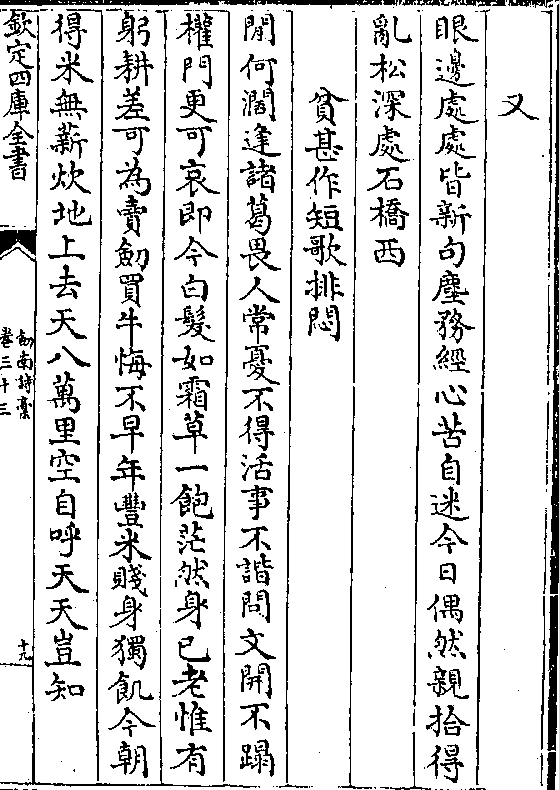 又
眼邊處處皆新句塵務經心苦自迷今日偶然親拾得
亂松深處石橋西
貧甚作短歌排悶
閒何濶逢諸葛畏人常憂不得活事不諧問文開不蹋
權門更可哀即今白髮如霜草一飽茫然身已老惟有
躬耕差可為賣劒買牛悔不早年豐米賤身獨飢今朝
得米無薪炊地上去天八萬里空自呼天天豈知
欽定四庫全書
劒南詩藁
卷三十三
十九